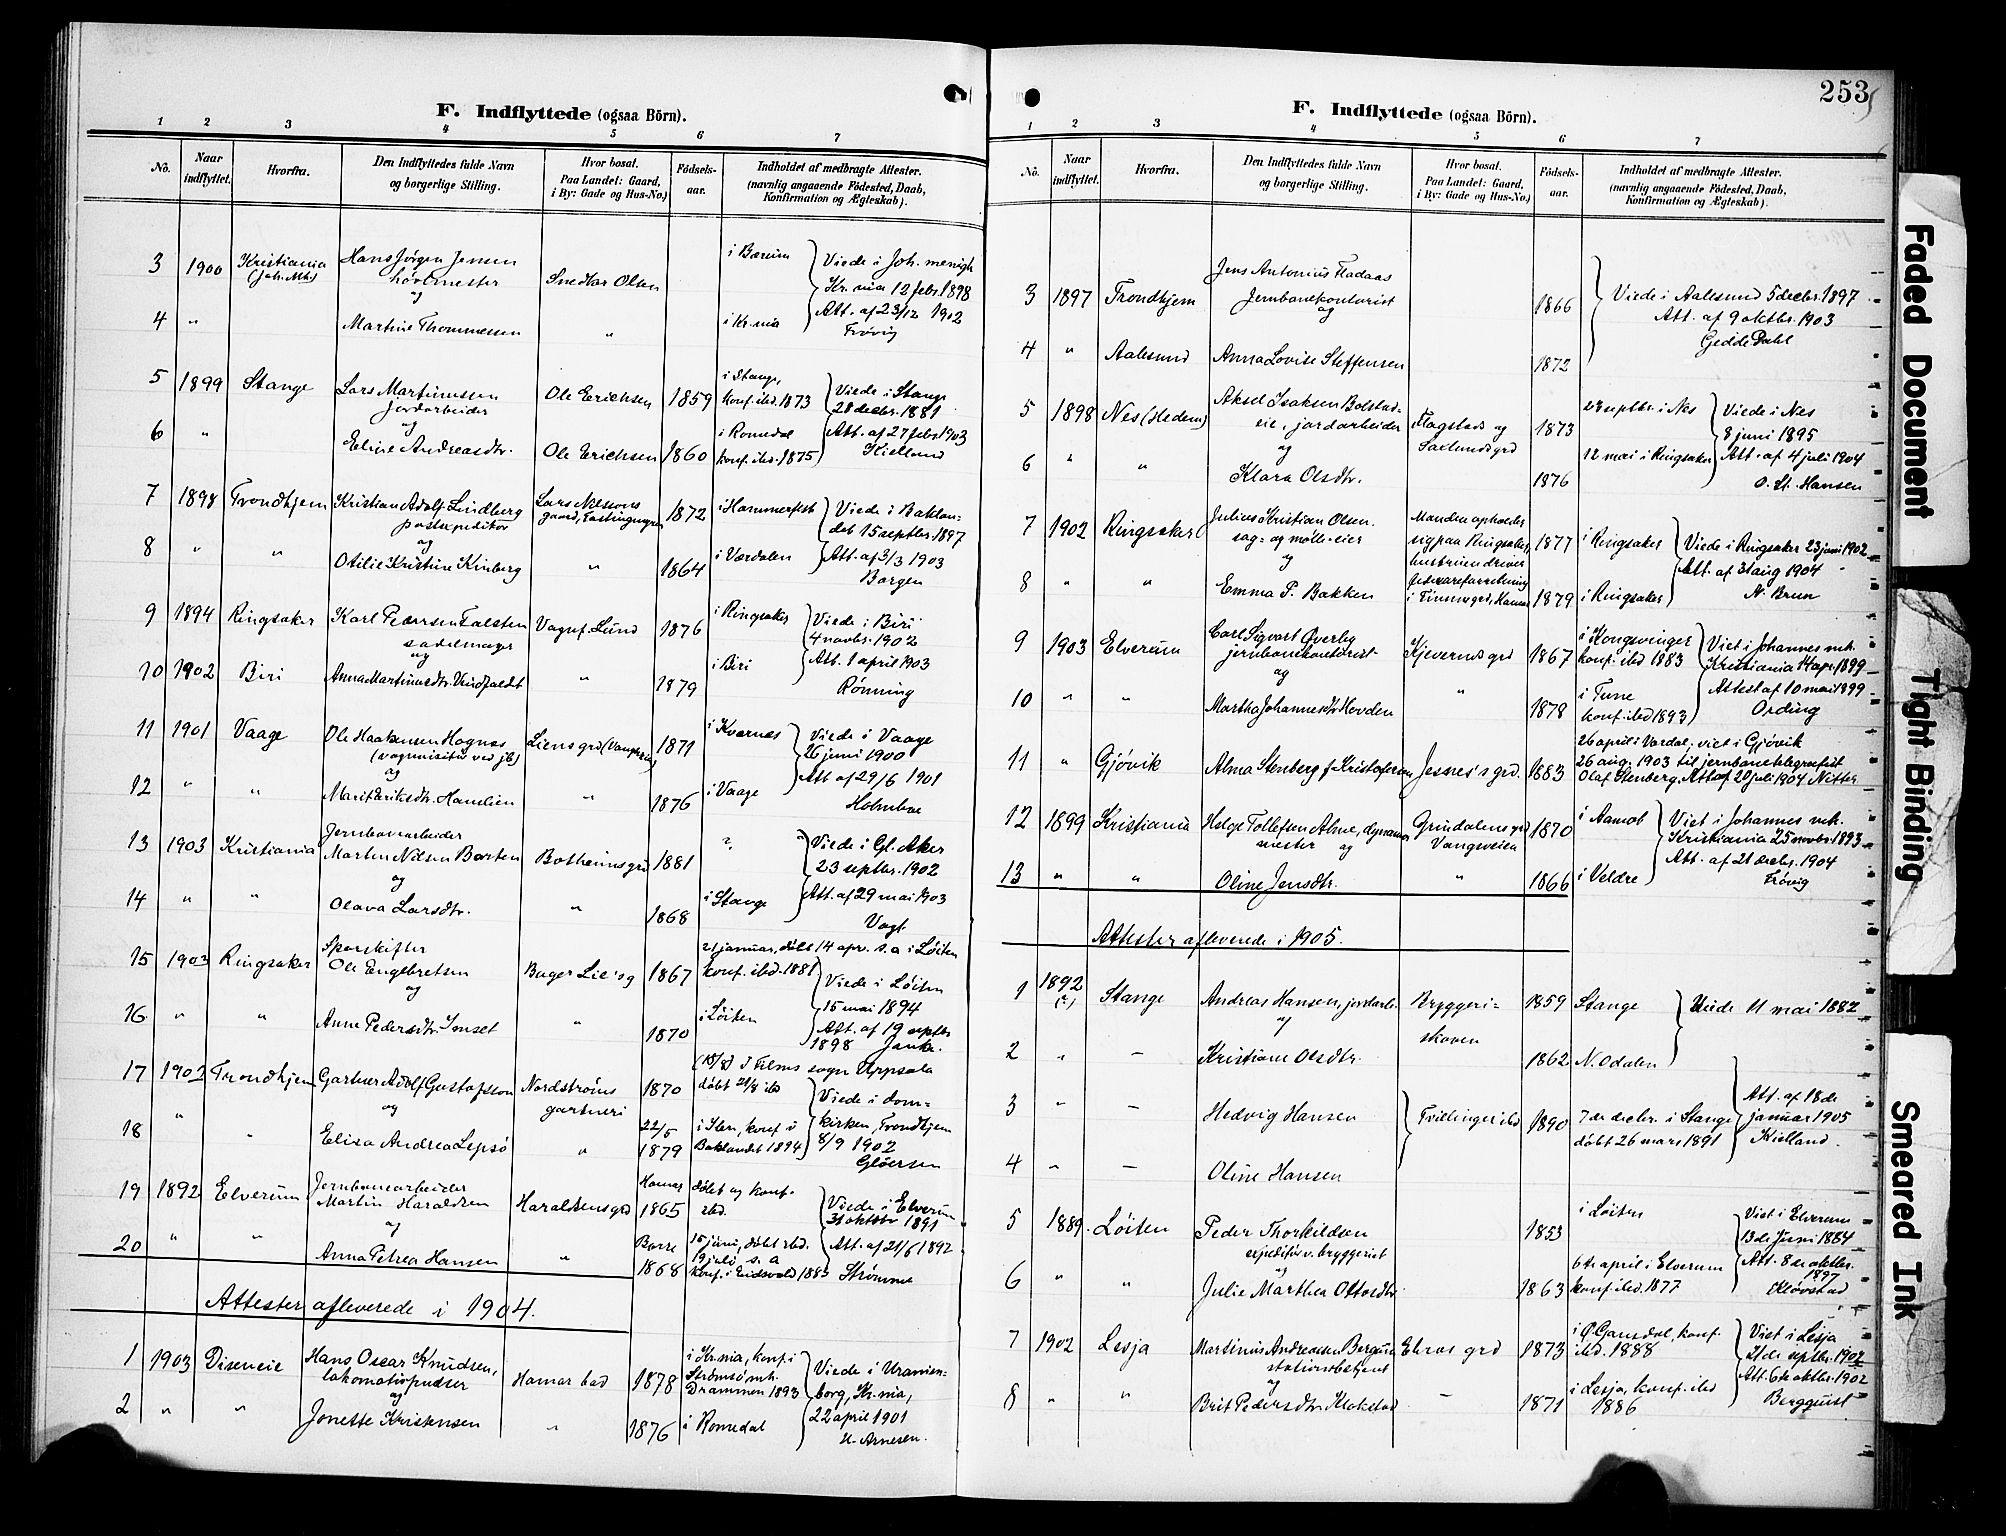 F. Indflyttede (ogsaa Börn).
1 2 3 4 5 6 7
No. Naar indflyttet. Hvorfra. Den Indflyttedes fulde Navn og borgerlige Stilling. Hvor bosat. Paa Landet: Gaard, i By: Gade og Hus-No.) Födsels-aar. Indholdet af medbragte Attester. (navnlig angaaende Födested, Daab, Konfirmation og Ægteskab).
3 1900 Kristiania (Joh. Mh.) Hans Jörgen Jensen og Snedker Olsen i Bærum Viede i Joh. menigh. Kr.nia 12 febr. 1898
4 " Martine Thommessen " i Kr.nia Att. af 23/12 1902 Frövig
5 1899 Stange Lars Martinussen Jordarbeider og Ole Erichsen 1859 i Stange, konf. ibd. 1873 Viede i Stange 28 decbr. 1881
6 " Eline Andreasdtr. Ole Erichsen 1860 i Romedal konf. ibd. 1875 Att. af 27 febr. 1903 Kielland
7 1898 Trondhjem Kristian Adolf Lindberg postexpeditör og Lars Nilssons gaard, 1872 i Hammerfest Viede i Baklan-det 15 septbr. 1897
8 " " Otilie Kristine Kinberg " 1864 i Værdalen Att. af 3/3 1903 Borgen
9 1894 Ringsaker Karl Pedersen Falsten sadelmager og Vognf. Lund 1876 i Ringsaker Viede i Biri 4 novbr. 1902
10 1902 Biri Anna Martinusdtr. " 1879 i Biri Att. 1 april 1903 Rønning
11 1901 Vaage Ole Haakensen Hognæs (vognvisitör ved jb.) og Liens grd (Vangsv.) 1871 i Kvernes Viede i Vaage 26 juni 1900
12 " " Marit Eriksdtr. Hamelien " 1876 i Vaage Att. af 29/6 1901 Holmboe
13 1903 Kristiania Jernbanearbeider Martin Nilsen Barten og Botheims grd 1881 " Viede i Gl. Aker 23 septbr. 1902
14 " " Olava Larsdtr. " 1868 i Stange Att. af 29 mai 1903 Vogt
15 1903 Ringsaker Sporskifter Ole Engebretsen og Bager Lie's grd 1867 21 januar, döbt 14 apr. s.a. i Löiten konf. ibd. 1881 Viede i Löiten 15 mai 1894
16 " " Anne Pedersdtr. Imset " 1870 i Löiten Att. af 19 septbr 1898 Janke.
17 1902 Trondhjem Gartner Adolf Gustafsson og Nordströms gartneri 1870 (18/8) I Films sogn Uppsala döbt 21/8 ibd Viede i dom-kirken, Trondhjem
18 " " Elisa Andrea Lepsö " 22/5 1879 i Ilen, konf. i Baklandet 1894 8/9 1902 Glöersen
19 1892 Elverum Jernbanearbeider Martin Haraldsen og Haraldsens grd Hamar 1865 döbt og konf. ibd. Viede i Elverum 31 oktbr 1891
20 " " Anna Petrea Hansen " Borre 1868 15 juni, döbt ibd. 19 juli s. a konf. i Eidsvold 1883 Att. af 21/6 1892 Strömme
Attester afleverede i 1904.
1 1903 Diseneie Hans Oscar Knudsen, lokomotivpudser og Hamar bad 1878 i Kr.nia, konf. i Strömsö mh. Drammen 1893 Viede i Uranien-borg, Kr.nia,
2 " " Jonette Kristensen " 1876 i Romedal 22 april 1901 H. Arnesen.
253
F. Indflyttede (ogsaa Börn).
1 2 3 4 5 6 7
No. Naar indflyttet. Hvorfra. Den Indflyttedes fulde Navn og borgerlige Stilling. Hvor bosat. Paa Landet: Gaard, i By: Gade og Hus-No.) Födsels-aar. Indholdet af medbragte Attester. (navnlig angaaende Födested, Daab, Konfirmation og Ægteskab).
3 1897 Trondhjem Jens Antonius Fladaas Jernbanekontorist og 1866 Viede i Aalesund 5 decbr. 1897 Att. af 9 oktbr. 1903 Gedde Dahl
4 " Aalesund Anna Lovise Steffensen 1872
5 1898 Nes (Hedem) Aksel Isaksen Bolstad-eie, jordarbeider og Flagstads og Saxlunds grd 1873 23 septbr. i Nes Viede i Nes 8 juni 1895
6 " " Klara Olsdtr. 1876 12 mai i Ringsaker Att. af 4 juli 1904 O. St. Hansen
7 1902 Ringsaker Julius Kristian Olsen. sag- og mölle-eier og Manden opholder sig paa Ringsaker, hustruen driver 1877 i Ringsaker Viede i Ringsaker 23 juni 1902
8 " " Emma P. Bakken i Finnes grd, Hamar 1879 i Ringsaker Att. af 31 aug 1904 N. Brun
9 1903 Elverum Carl Sigvart Överby jernbanekontorist og Kjeverud grd 1867 i Kongsvinger konf. ibd 1883 Viet i Johannes mh. Kristiania 14 apr. 1899
10 " " Martha Johannesdtr Hovden " 1878 i Tune konf. ibd 1893 Attest af 10 mai 1899 Ording
11 " Gjövik Alma Stenberg f. Kristofersen Jesnes's grd. 1883 26 april i Vardal; viet i Gjövik 26 aug. 1903 til jernbanetelegrafist Olaf Stenberg. Att af 20 juli 1904 Nitter
12 1899 Kristiania Helge Tollefsen Alme, dynamo mester og Grundalens grd Vangsveien 1870 i Aamot Viet i Johannes mk. Kristiania 25 novbr. 1893
13 " " Oline Jensdtr. " 1866 i Veldre Att. af 21 decbr. 1904 Frövig
Attester afleverede i 1905.
1 1892 (?) Stange Andreas Hansen, jordarb. og Bryggeri-skoven 1859 Stange Viede 11 mai 1882
2 " — Kristiane Olsdtr. 1862 N. Odalen
3 " — Hedvig Hansen Tvillinger ibd 1890 7de decbr. i Stange döbt 26 mars 1891 Att. af 18de januar 1905 Kielland.
4 " — Oline Hansen
5 1889 Löiten Peder Thorkildsen expeditör v. bryggeriet og 1853 i Löiten Viet i Elverum 13de Juni 1884
6 " " Julie Marthea Ottosdtr. 1863 6te april i Elverum konf. ibd. 1877 Att. 8de oktbr. 1897 Klövstad
7 1902 Lesja Martinius Andreassen Berg stationsbetjent og grd 1873 i Ö. Gausdal, konf. ibd. 1888 Viet i Lesja 21de septbr. 1902
8 " " Brit Pedersdtr. Klokstad — 1871 i Lesja, konf. ibd 1886 Att. 6te oktbr. 1902 Bergquist
Faded Document
Tight Binding
Smeared Ink